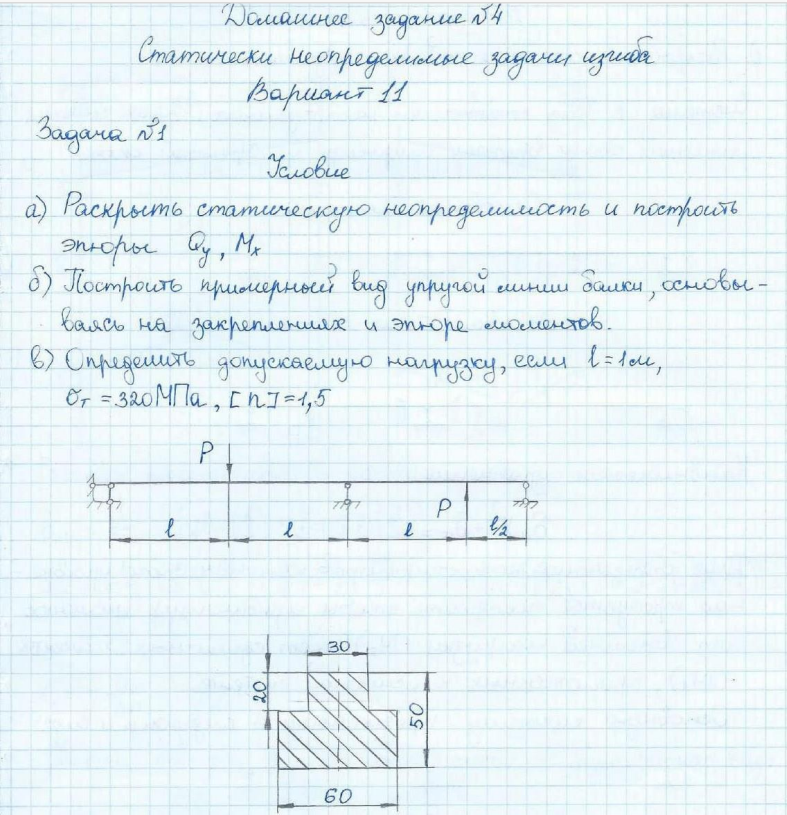 Домашнее задание №4
Статически неопределимые задачи изгиба
Вариант 11
Задача №1
Условие
а) Раскрыть статическую неопределимость и построить
эпюры Qy, Mx
б) Построить примерный вид упругой линии балки, основы-
ваясь на закреплениях и эпюре моментов.
в) Определить допускаемую нагрузку, если l=1м,
σт =320МПа, [n]=1,5
P
P
l l l l/2
30
20
50
60